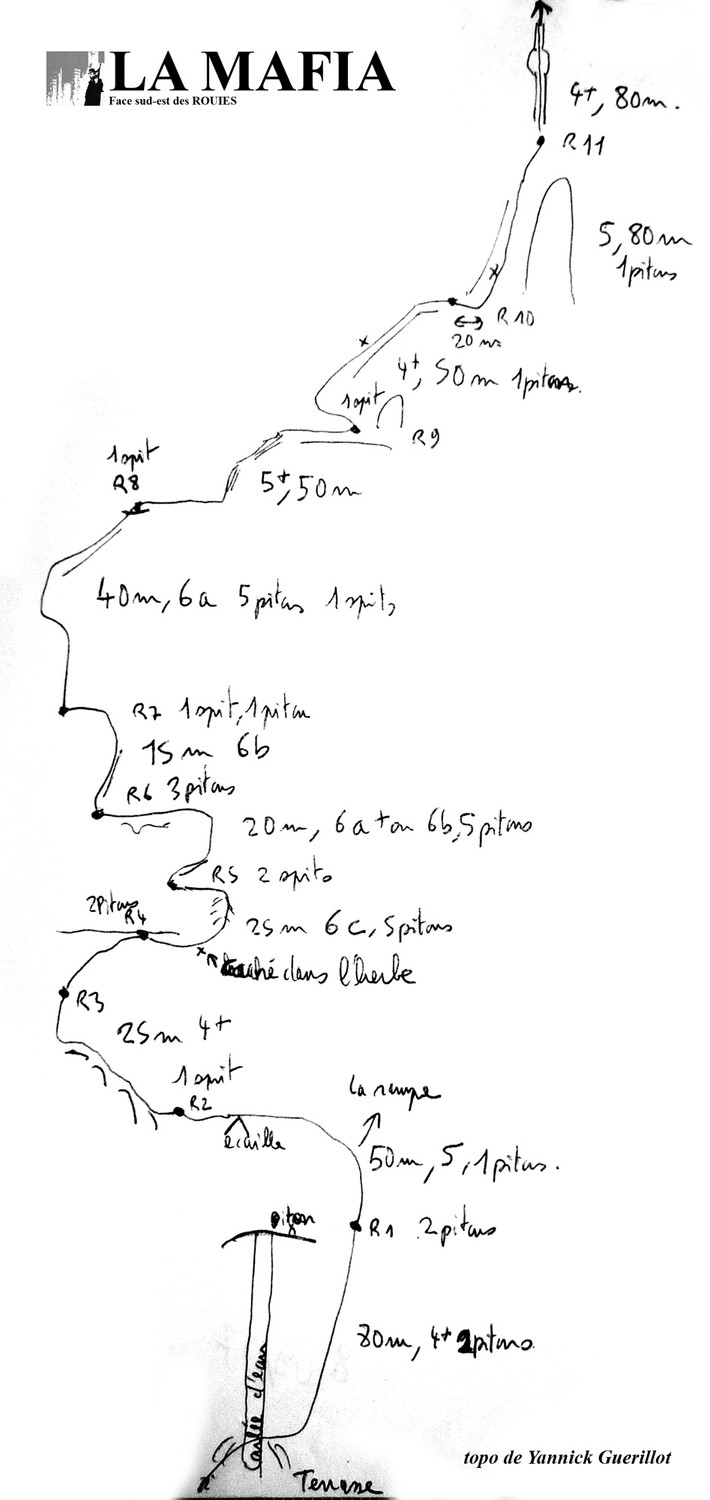 LA MAFIA
Face sud-est des ROUIES
4+, 80m.
R11
5, 80m
1pitons
R10
20 m
4+, 50m 1pitons.
1spit
R9
1spit
R8
5+, 50m
40m, 6a 5pitons 1spits
R7 1spit, 1piton
15m 6b
R6 3pitons
20m, 6a+ou 6b, 5pitons
R5 2 spits
2Pitons
R4
25m 6c, 5pitons
caché dans l'herbe
R3
25m 4+
1spit
R2
La rampe
écaille
50m, 5, 1pitons.
piton
R1 2pitons
80m, 4+ 2pitons.
d'eau
Terrasse
topo de Yannick Guerillot